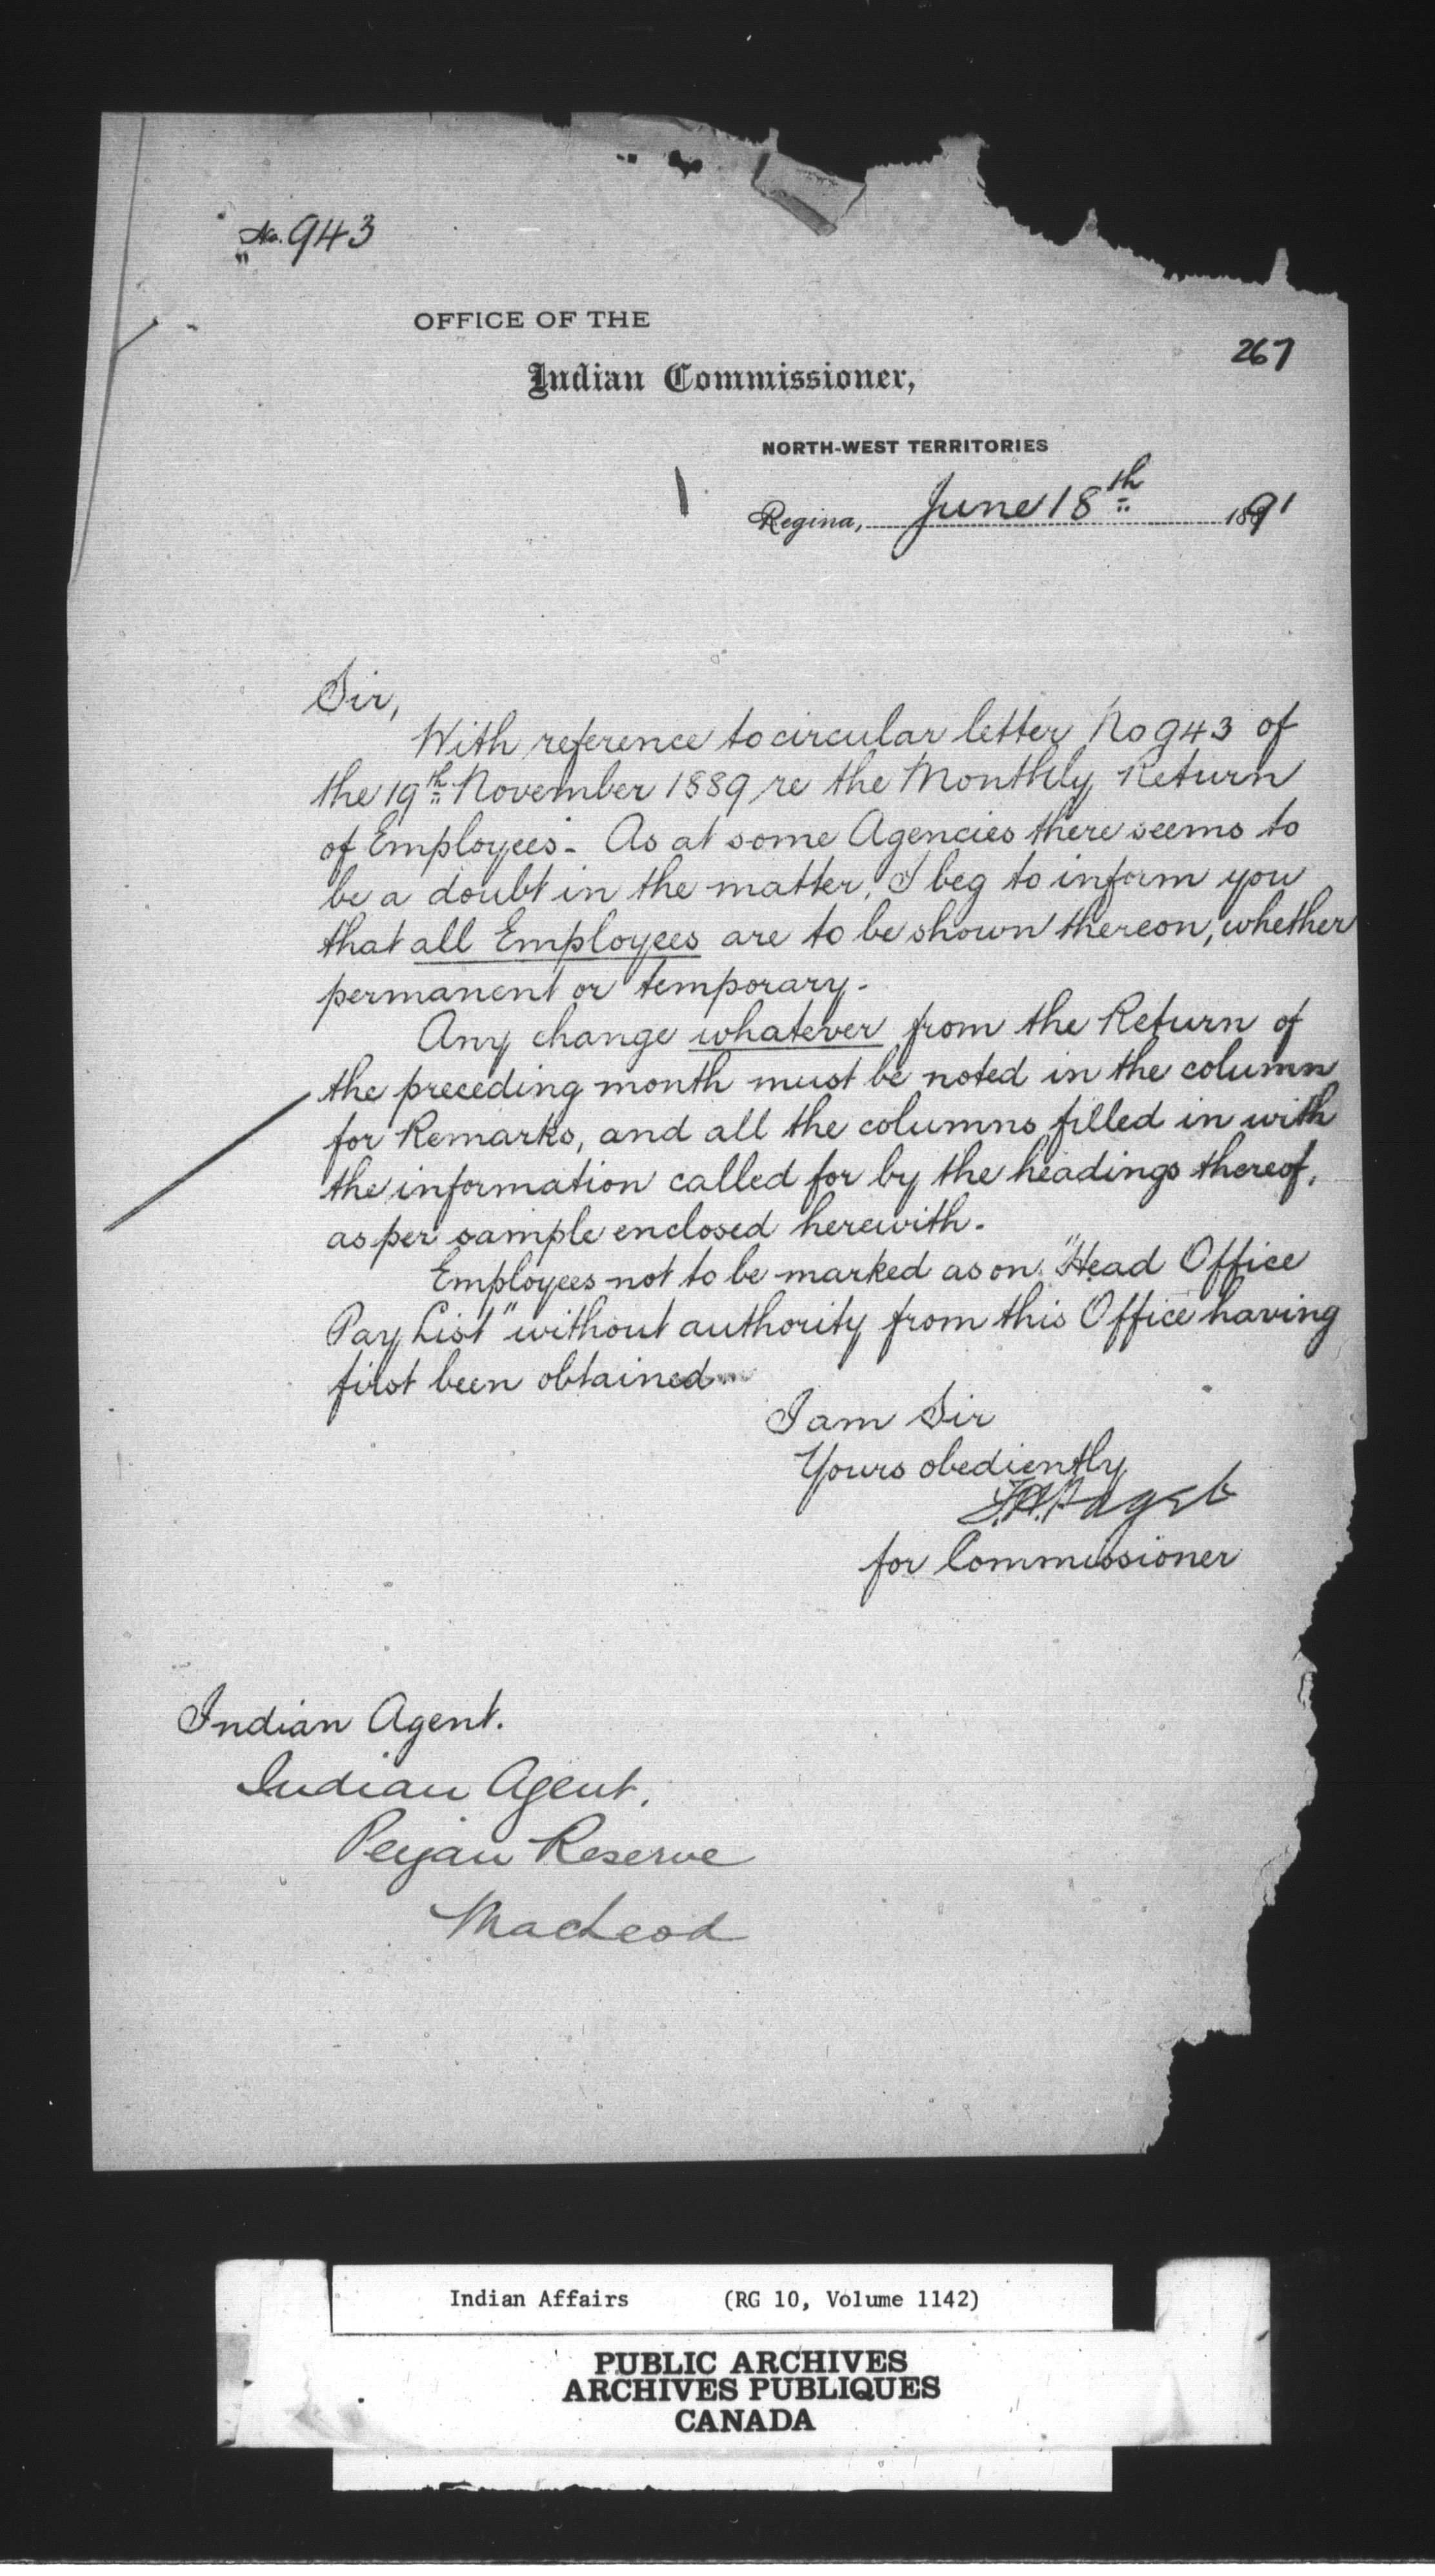 No. 943
"
OFFICE OF THE
Indian Commissioner,
267
NORTH-WEST TERRITORIES
Regina, June 18th 1891
Sir,
With reference to circular letter No 943 of
the 19th November 1889 re the Monthly Return
of Employees. As at some Agencies there seems to
be a doubt in the matter, I beg to inform you
that all Employees are to be shown thereon, whether
permanent or temporary.
Any change whatever from the Return of
the preceding month must be noted in the column
for Remarks, and all the columns filled in with
the information called for by the headings thereof,
as per sample enclosed herewith.
Employees not to be marked as on "Head Office
Pay List" without authority from this Office having
first been obtained
I am Sir
Yours obediently
Paget
for Commissioner
Indian Agent.
Indian Agent.
Peigan Reserve
MacLeod
Indian Affairs (RG 10, Volume 1142)
PUBLIC ARCHIVES
ARCHIVES PUBLIQUES
CANADA